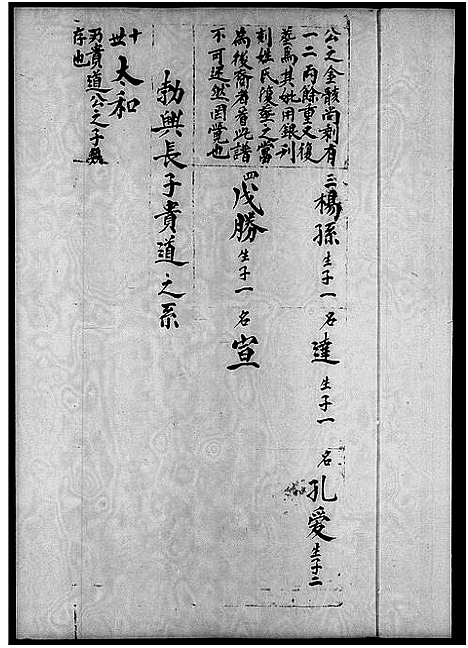 公之金骸尚剩有
一二两餘重又復
葬焉其妣用銀刻
刻姓氏復塟之當
為後裔者看此譜
不可迷然罔覺也
三楊孫生子一名達生子一名孔愛生子二
四戊勝生子一名宣
勃興長子貴道之系
十世太和
乃貴道公之子
存也